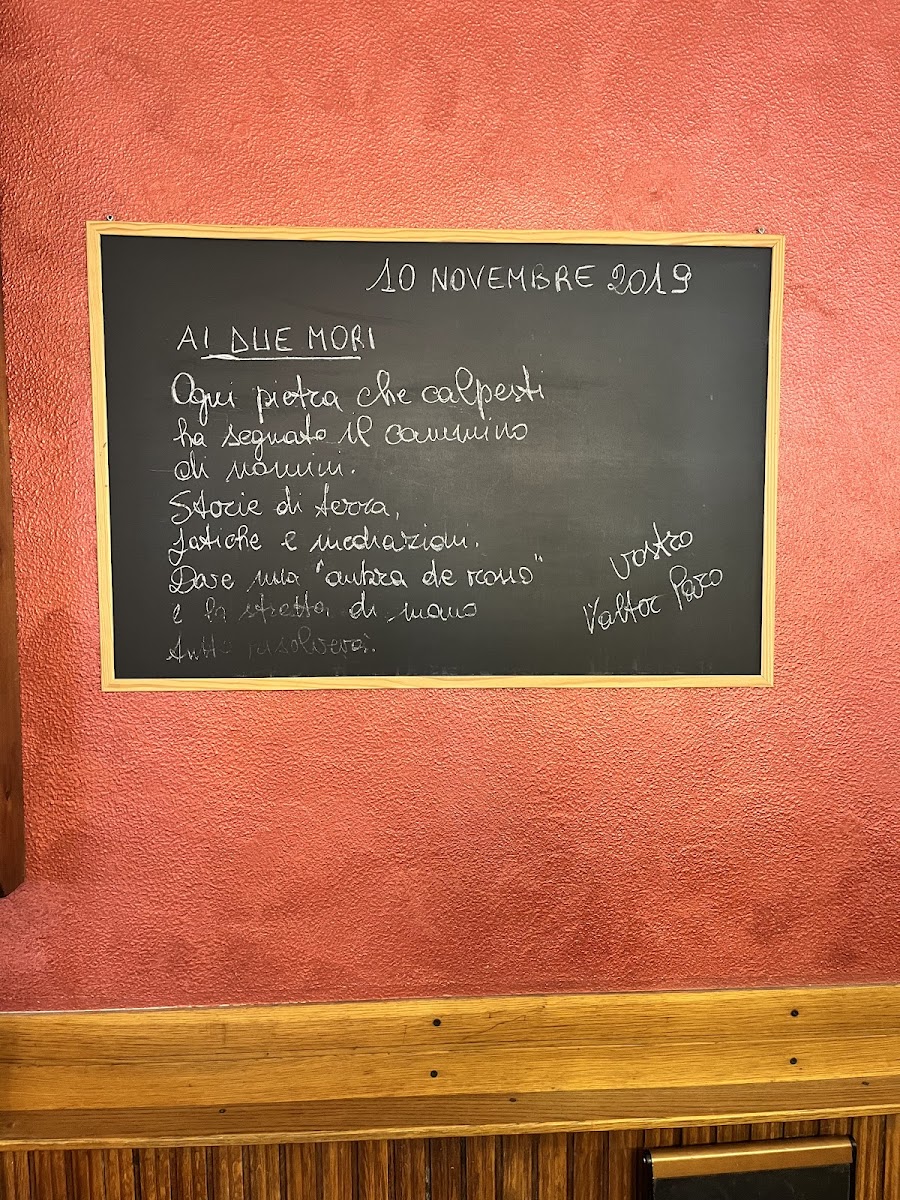 10 NOVEMBRE 2019
AI DUE MORI
Ogni pietra che calpesti
ha segnato il cammino
di uomini.
Storie di terra,
fatiche e mediazioni.
Dove una "ombra de rosso"
e la stretta di mano
tutto risolverà.
vostro
Valter Pavo